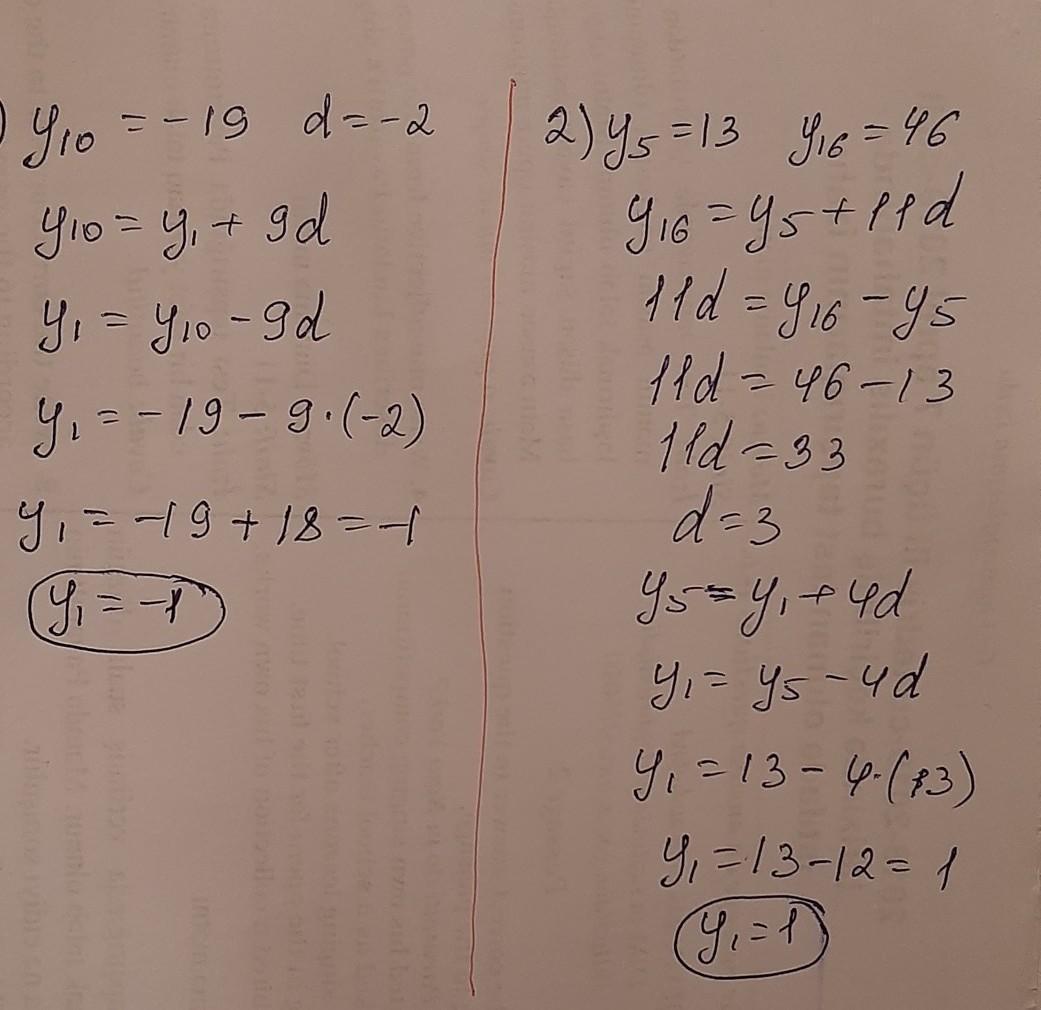 ) y₁₀ = -19 d = -2
y₁₀ = y₁ + 9d
y₁ = y₁₀ - 9d
y₁ = -19 - 9·(-2)
y₁ = -19 + 18 = -1
y₁ = -1
2) y₅ = 13 y₁₆ = 46
y₁₆ = y₅ + 11d
11d = y₁₆ - y₅
11d = 46 - 13
11d = 33
d = 3
y₅ = y₁ + 4d
y₁ = y₅ - 4d
y₁ = 13 - 4·(+3)
y₁ = 13 - 12 = 1
y₁ = 1